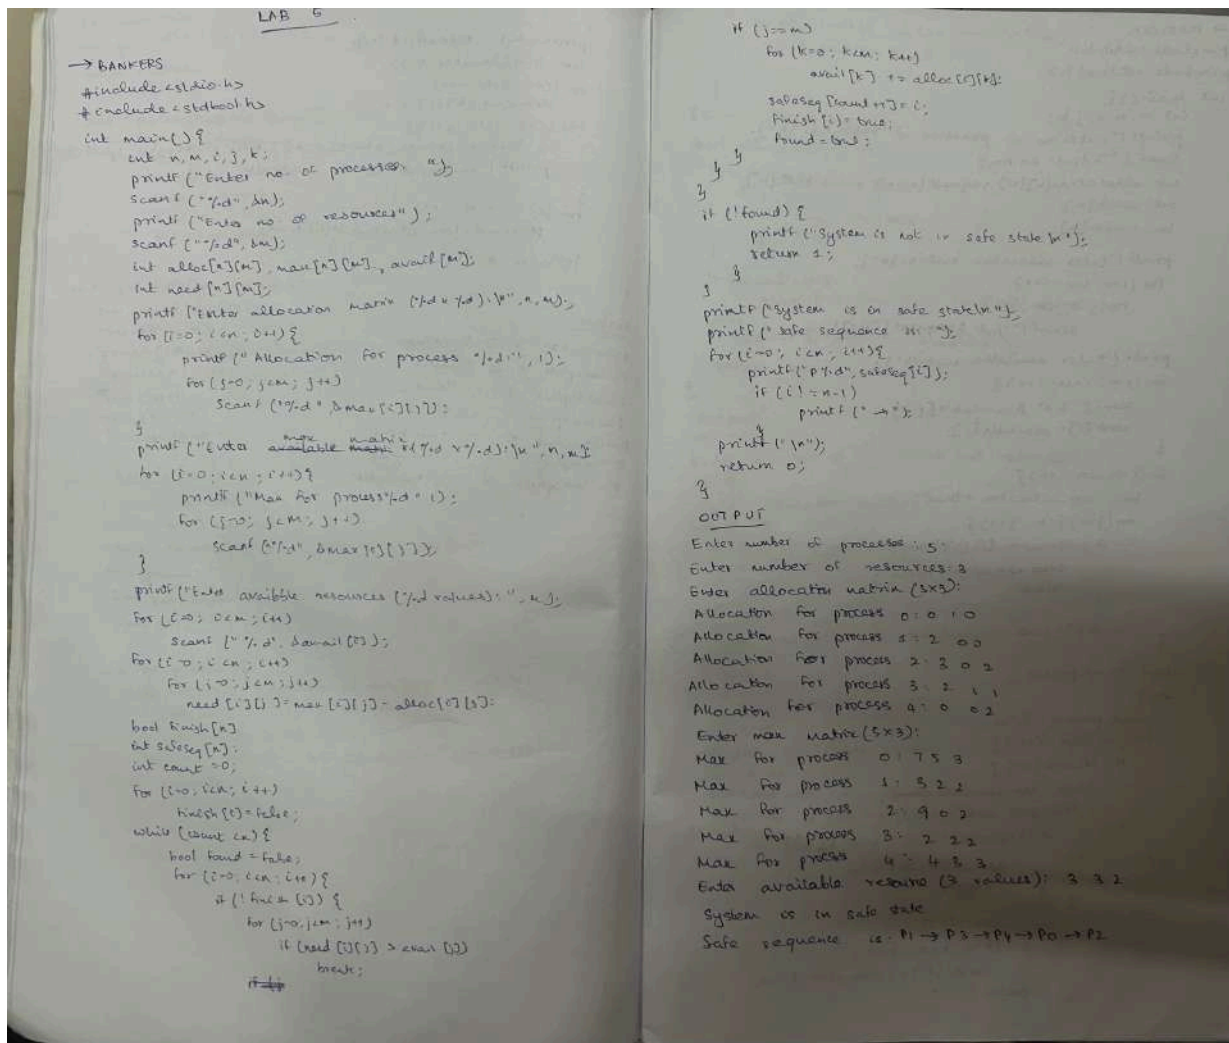 LAB 5
→ BANKERS
#include <stdio.h>
#include <stdbool.h>
int main() {
int n, m, i, j, k;
printf ("Enter no. of processes: ");
scanf ("%d", &n);
printf ("Enter no. of resources");
scanf ("%d", &m);
int alloc[n][m], max[n][m], avail[m];
int need[n][m];
printf ("Enter allocation matrix (%d x %d):\n", n, m);
for (i=0; i<n; i++) {
printf ("Allocation for process %d:", i);
for (j=0; j<m; j++)
scanf ("%d", &max[i][j]);
}
printf ("Enter max matrix (%d x %d):\n", n, m);
for (i=0; i<n; i++) {
printf ("Max for process %d" i);
for (j=0; j<m; j++)
scanf ("%d", &max[i][j]);
}
printf ("Enter available resources (%d values): ", m);
for (i=0; i<m; i++)
scanf ("%d", &avail[i]);
for (i=0; i<n; i++)
for (j=0; j<m; j++)
need[i][j] = max[i][j] - alloc[i][j];
bool finish[n]
int safeseq[n];
int count = 0;
for (i=0; i<n; i++)
finish[i] = false;
while (count < n) {
bool found = false;
for (i=0; i<n; i++) {
if (!finish[i]) {
for (j=0; j<m; j++)
if (need[i][j] > avail[j])
break;
if (j==m)
for (k=0; k<m; k++)
avail[k] += alloc[i][k];
safeseq[count++] = i;
finish[i] = true;
found = true;
}
}
}
if (!found) {
printf ("System is not in safe state \n");
return 1;
}
}
printf ("System is in safe state \n");
printf ("Safe sequence is: ");
for (i=0; i<n; i++) {
printf ("P%d", safeseq[i]);
if (i != n-1)
printf (" → ");
}
printf ("\n");
return 0;
}
OUTPUT
Enter number of processes: 5
Enter number of resources: 3
Enter allocation matrix (5x3):
Allocation for process 0: 0 1 0
Allocation for process 1: 2 0 0
Allocation for process 2: 3 0 2
Allocation for process 3: 2 1 1
Allocation for process 4: 0 0 2
Enter max matrix (5x3):
Max for process 0: 7 5 3
Max for process 1: 3 2 2
Max for process 2: 9 0 2
Max for process 3: 2 2 2
Max for process 4: 4 3 3
Enter available resource (3 values): 3 3 2
System is in safe state
Safe sequence is: P1 → P3 → P4 → P0 → P2